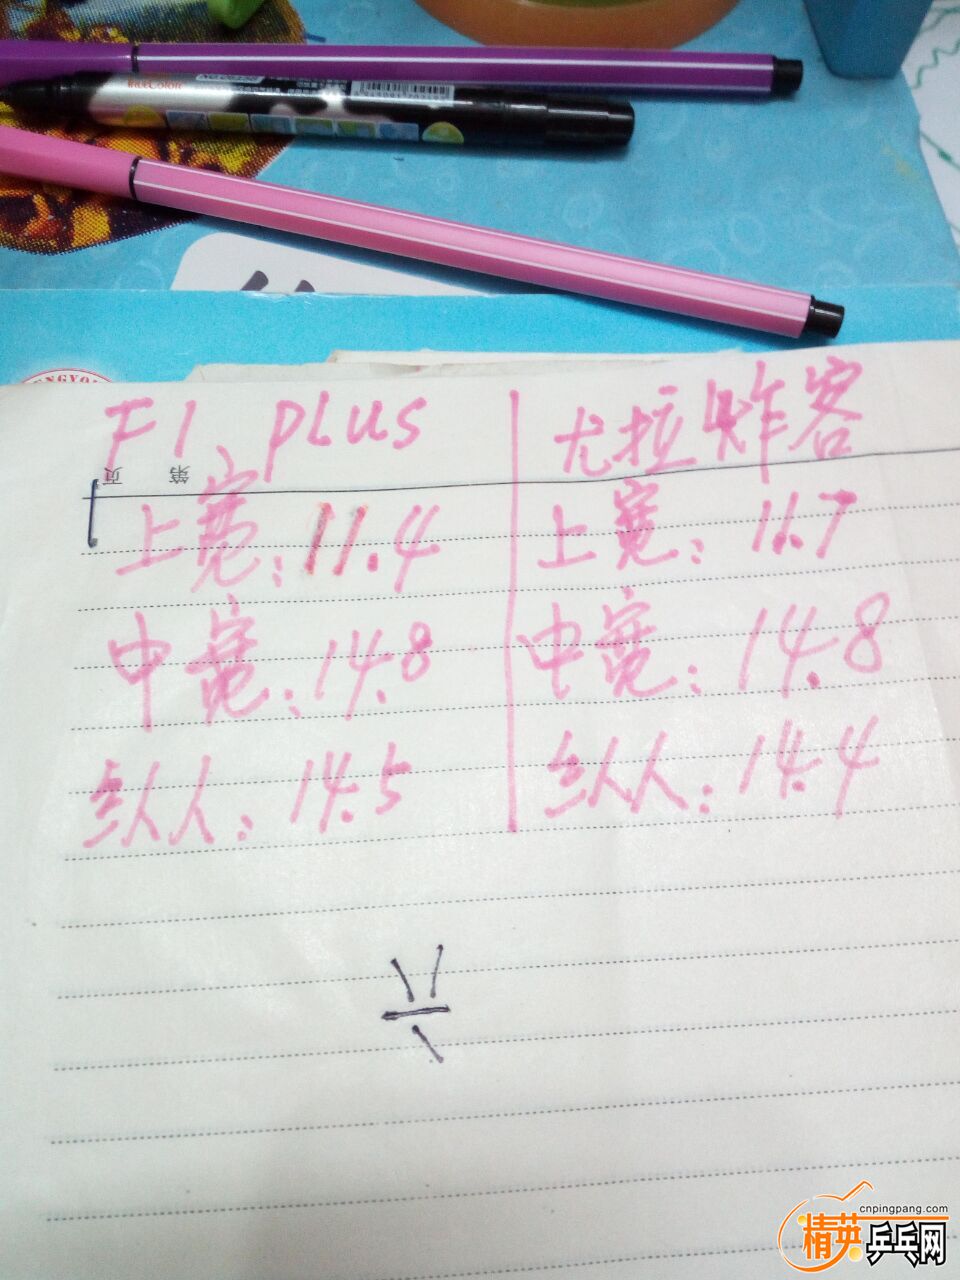 TrueColor
F1 plus
尤拉炸客
第 页
上宽:11.4
上宽:11.7
中宽:14.8
中宽:14.8
纵人:14.5
纵人:14.4
cnpingpang.com
精英乒乓网